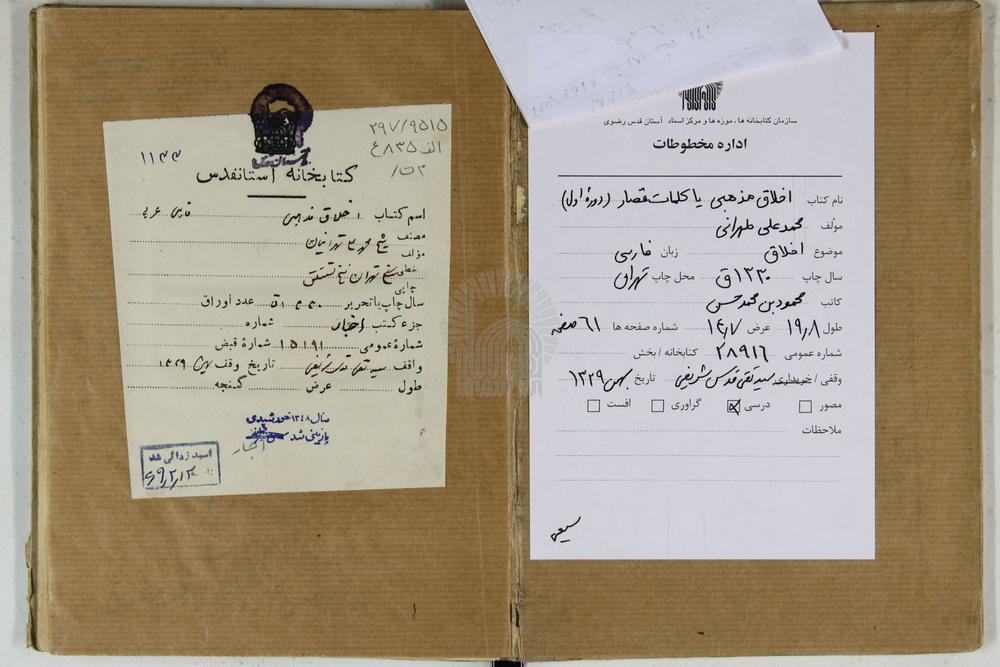 سازمان کتابخانه ها، موزه ها و مرکز اسناد آستان قدس رضوی
اداره مخطوطات
نام کتاب اخلاق مذهبی یا کلمات قصار (دورهٔ اول)
مؤلف محمد علی طهرانی
موضوع اخلاق زبان فارسی
سال چاپ ۱۳۳۰ق محل چاپ تهران
کاتب محمود بن محمد حسن
طول ۱۹٫۸ عرض ۱۴٫۷ شماره صفحه ها ۶۱ صفحه
شماره عمومی ۲۸۹۱۶ کتابخانه / بخش
وقفی / خریداری سید تقی قدس شریفی تاریخ بهمن ۱۳۲۹
مصور درسی گراوری افست
ملاحظات
۲۹۷/۹۵۱۵
الف ۸۳۵ع
۱۱۳۳
کتابخانه آستانقدس
اسم کتاب اخلاق مذهبی فارسی عربی
مصنف
مؤلف شیخ محمد علی تهرانیان
خطی
چاپی تهران نستعلیق
سال چاپ یا تحریر عدد اوراق
جزء کتب اخبار شماره
شمارهٔ عمومی ۱۵۱۹۱ شمارهٔ قبض
واقف سید تقی قدس شریفی تاریخ وقف بهمن ۱۳۲۹
طول عرض گنجه
سال ۱۳۴۸ خورشیدی
بازبینی شد
اسید زدائی شد